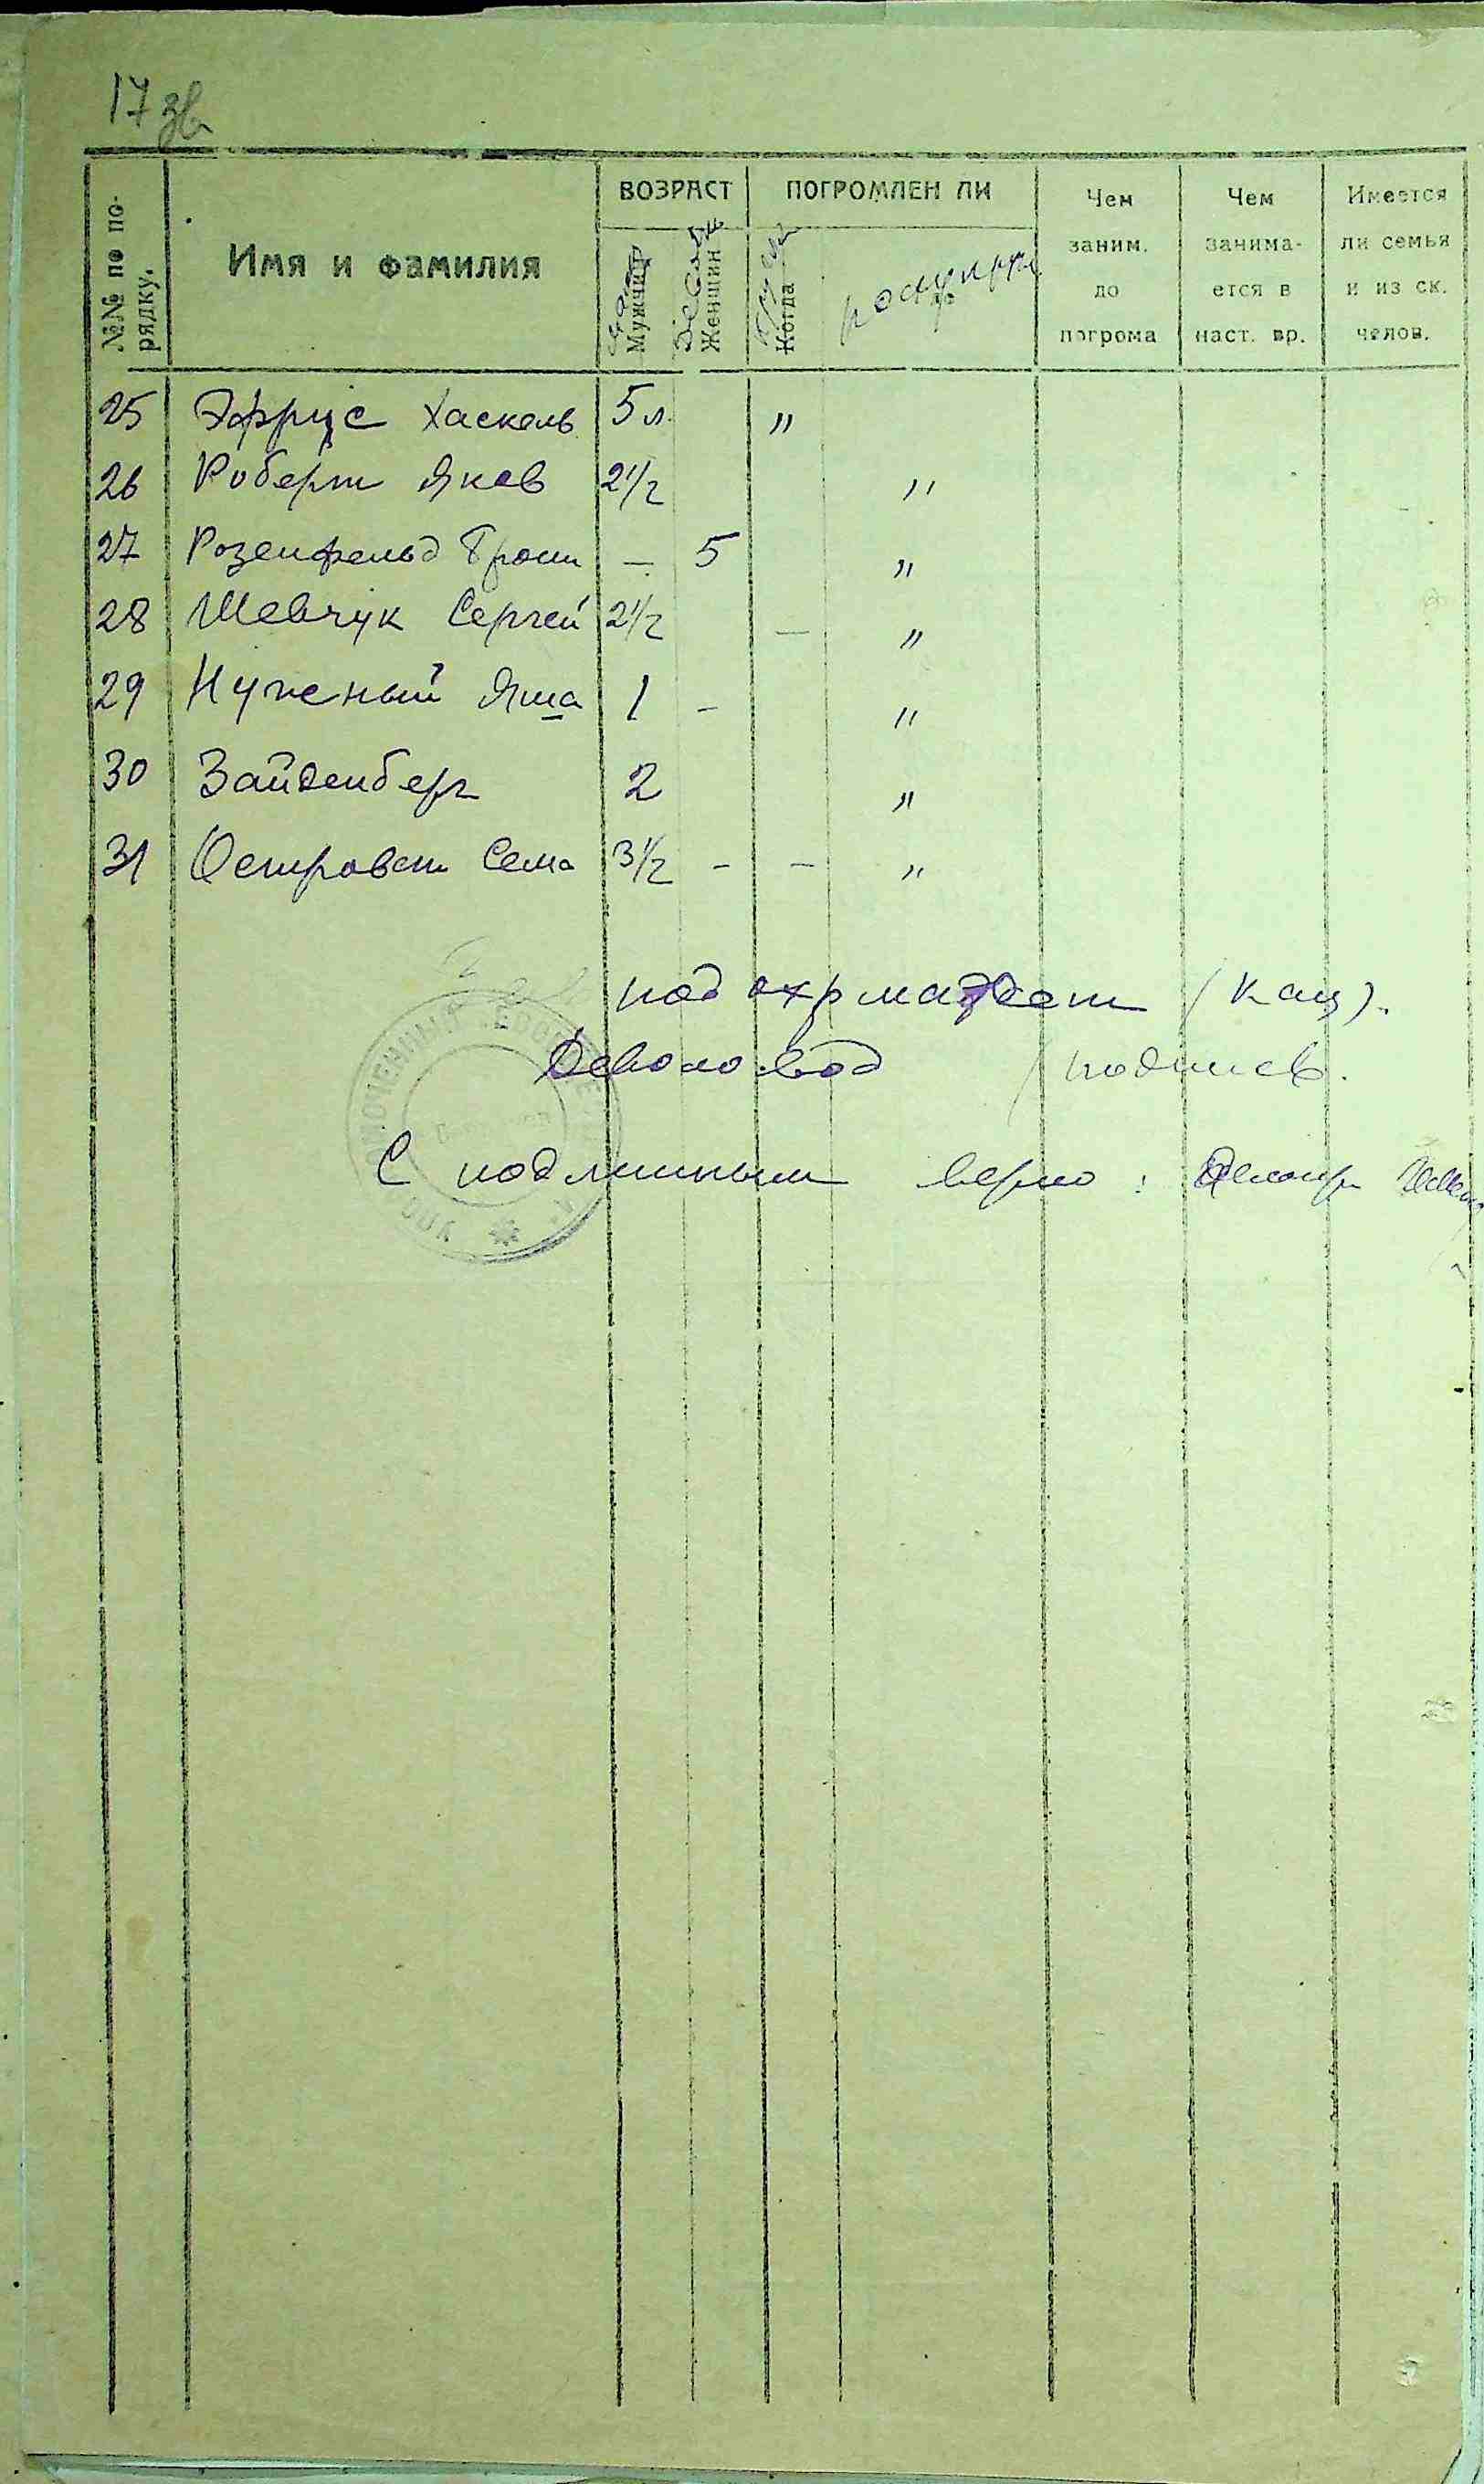 17 зв
№№ по по-
рядку.
Имя и фамилия
ВОЗРАСТ
Мужчин
Женщин
ПОГРОМЛЕН ЛИ
Когда
Чем
заним.
до
погрома
Чем
занима-
ется в
наст. вр.
Имеется
ли семья
и из ск.
челов.
25 Эфрус Хаскель 5 л. "
26 Роберт Яков 2 1/2 "
27 Розенфельд — 5 "
28 Шевчук Сергей 2 1/2 — "
29 Яша 1 - "
30 Зайденберг 2 "
31 Сема 3 1/2 - - "
под охр (Кац).
Деловод (подпись.
С подлинным верно: